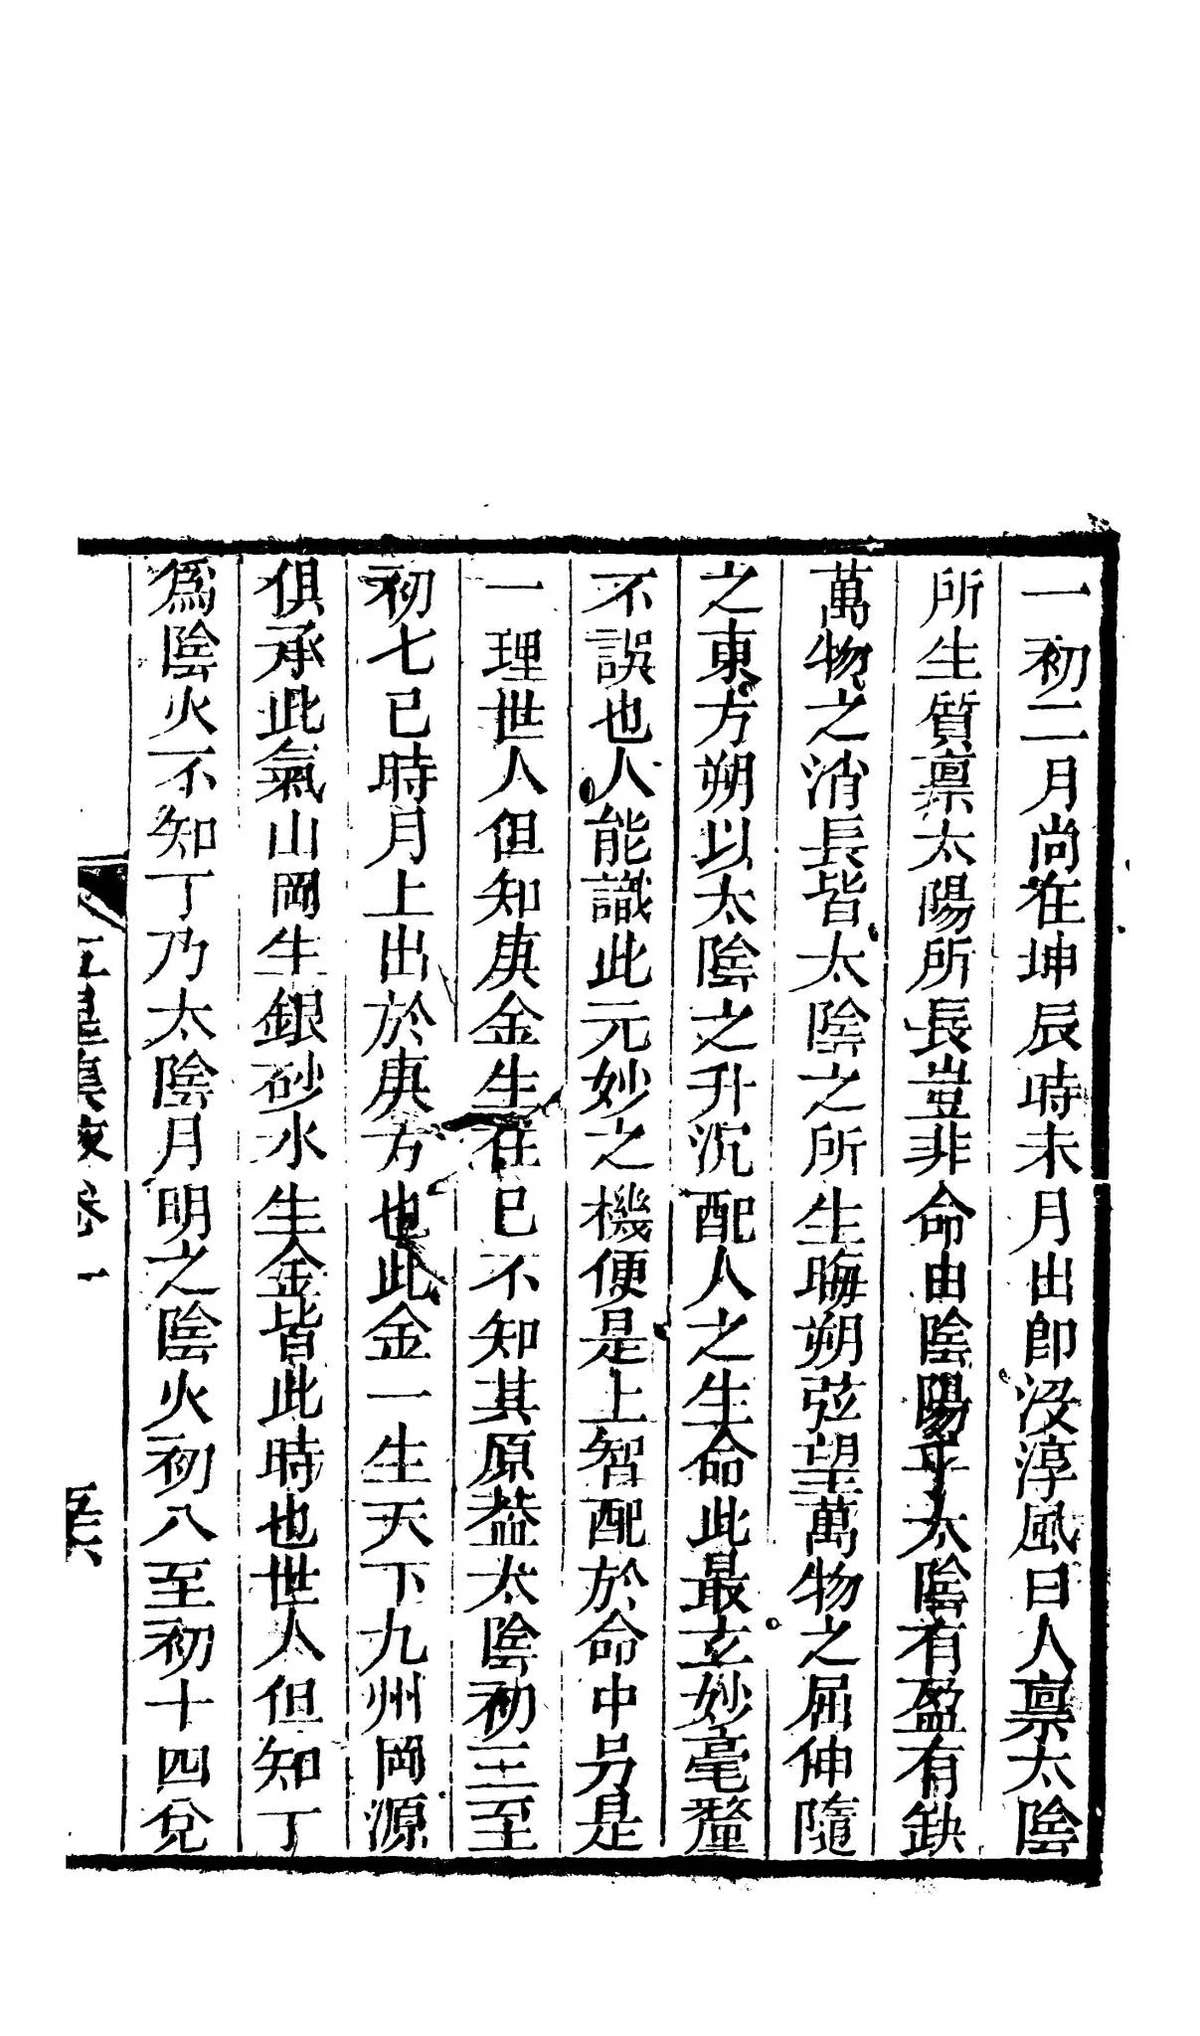 一初二月尚在坤辰時未月出卽没淳風曰人禀太陰
所生質禀太陽所長豈非命由陰陽乎太陰有盈有缺
萬物之消長皆太陰之所生晦朔弦望萬物之屈伸隨
之東方朔以太陰之升沉配人之生命此最玄妙毫釐
不誤也人能識此元妙之機便是上智配於命中另是
一理世人但知庚金生在巳不知其原葢太陰初三至
初七巳時月上出於庚方也此金一生天下九州岡源
俱承此氣山岡生銀砂水生金皆此時也世人但知丁
爲陰火不知丁乃太陰月明之陰火初八至初十四兌
卷一